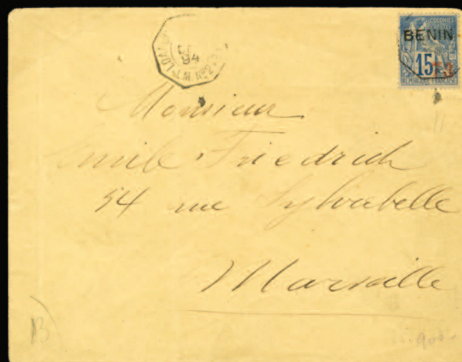 BENIN
15
94
Monsieur
Emile Friedrich
54 rue Sylvabelle
Marseille